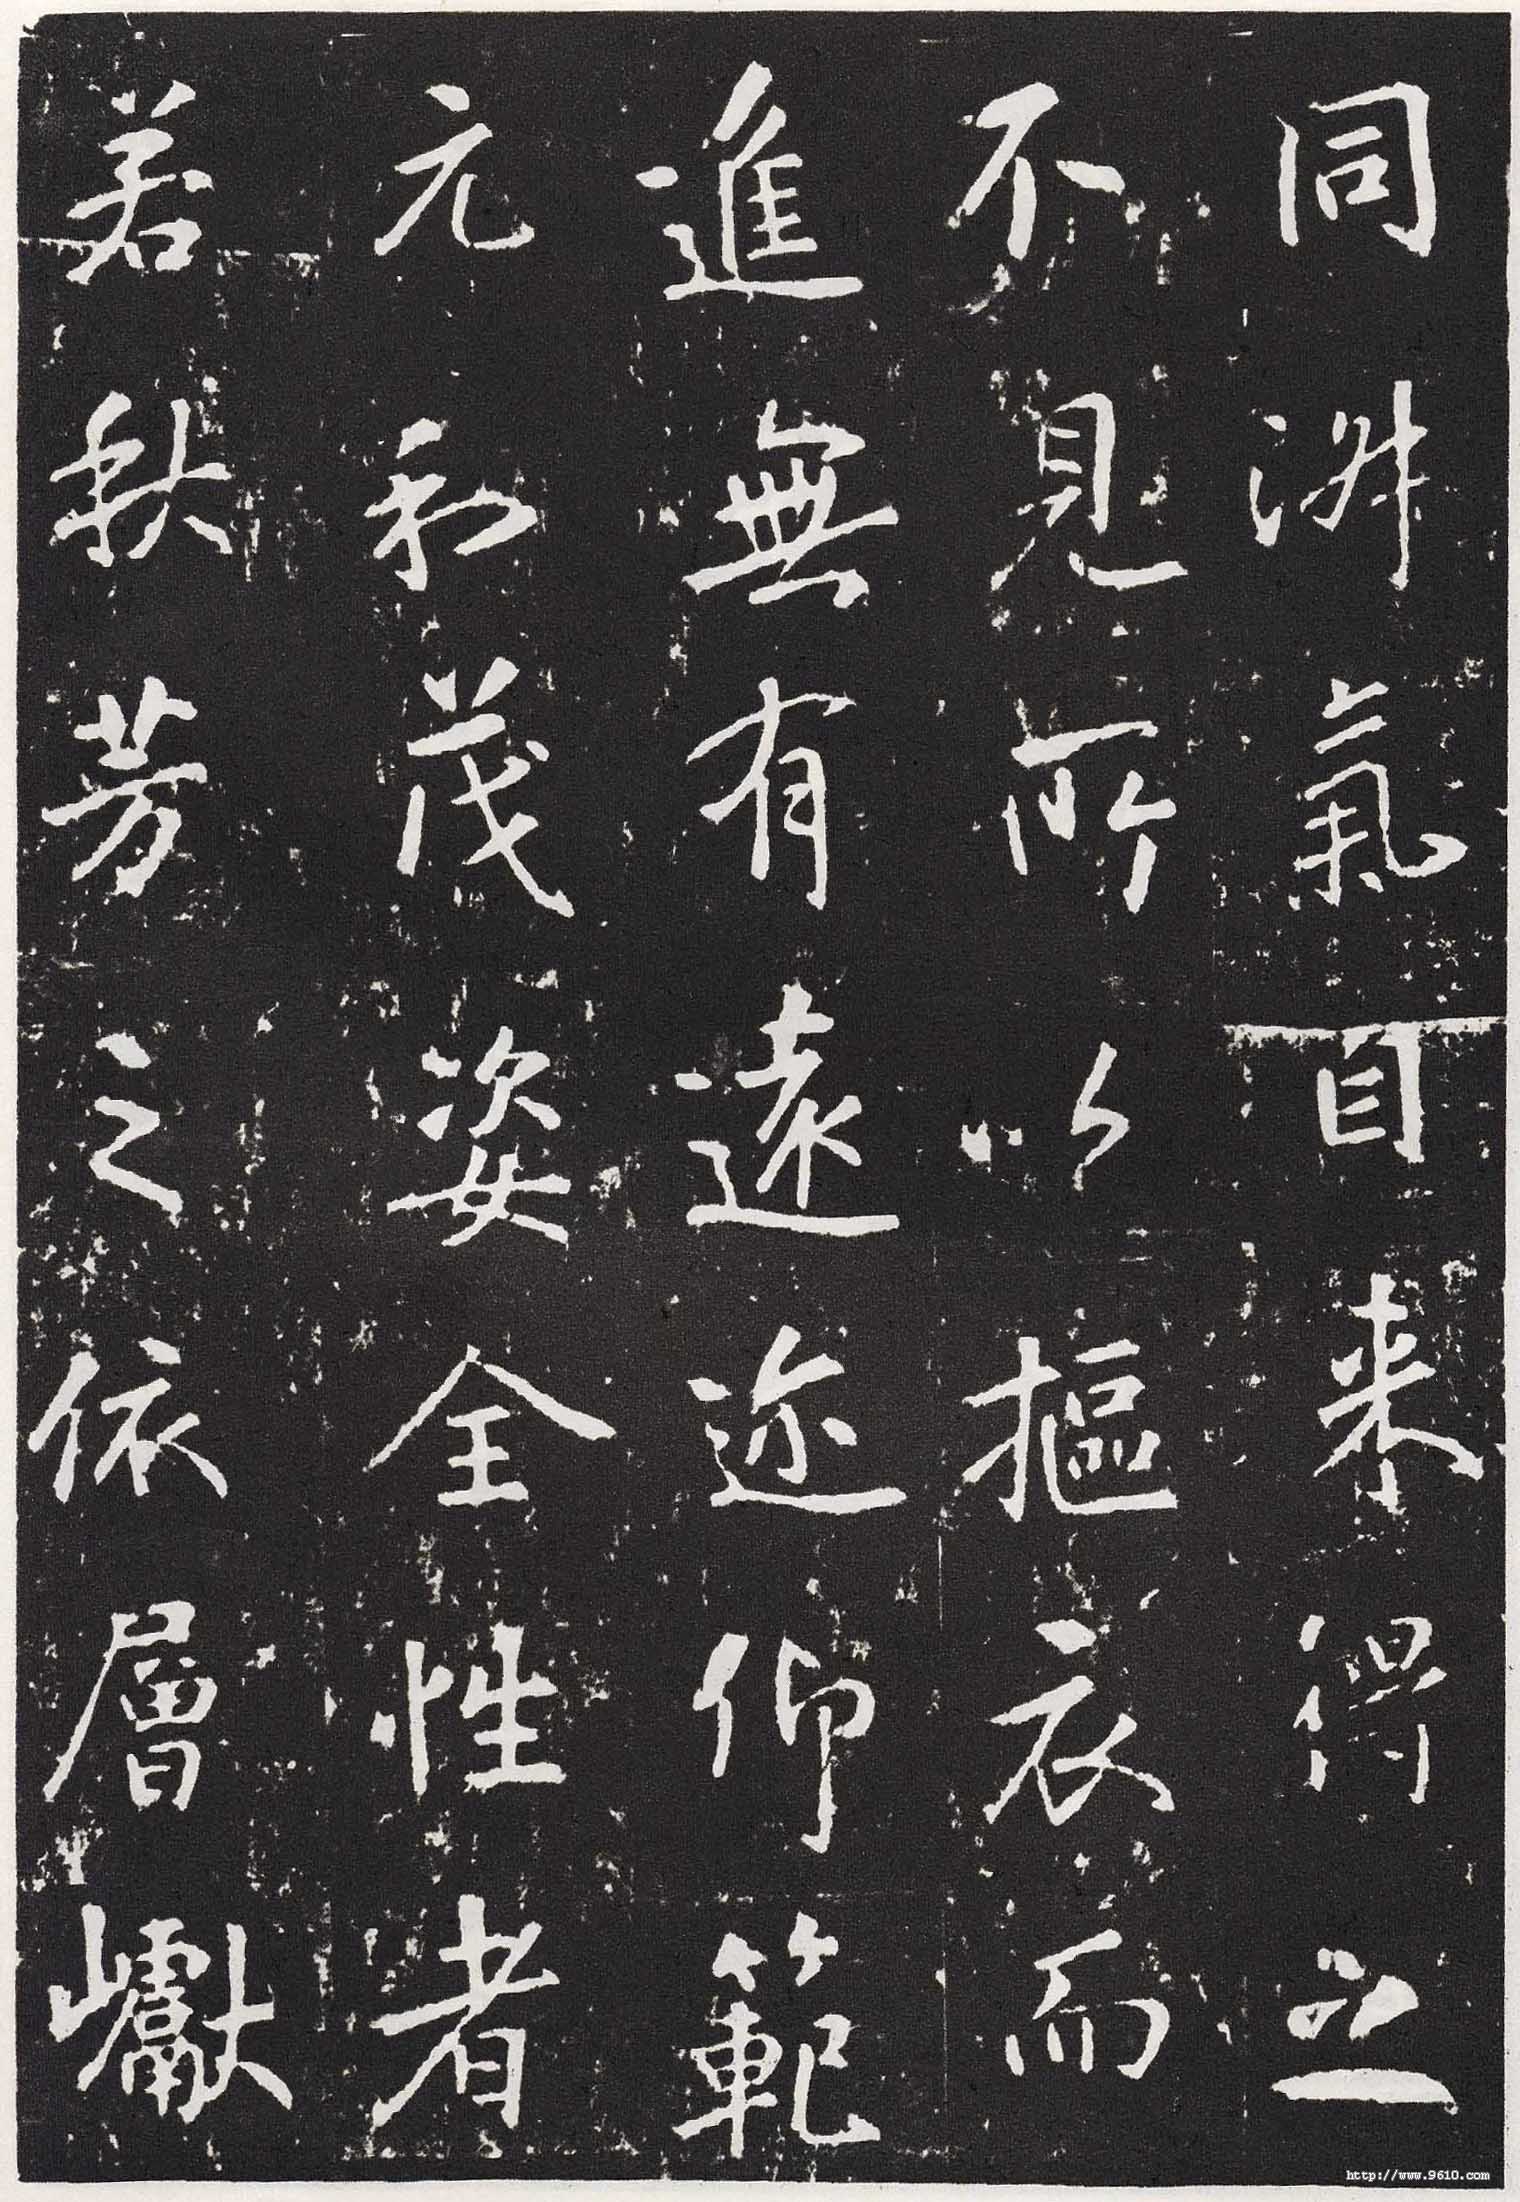 同淵氣自来得之
不見所以摳衣而
進無有遠迩仰範
元和茂姿全性者
若秋芳之依層巘
http://www.9610.com